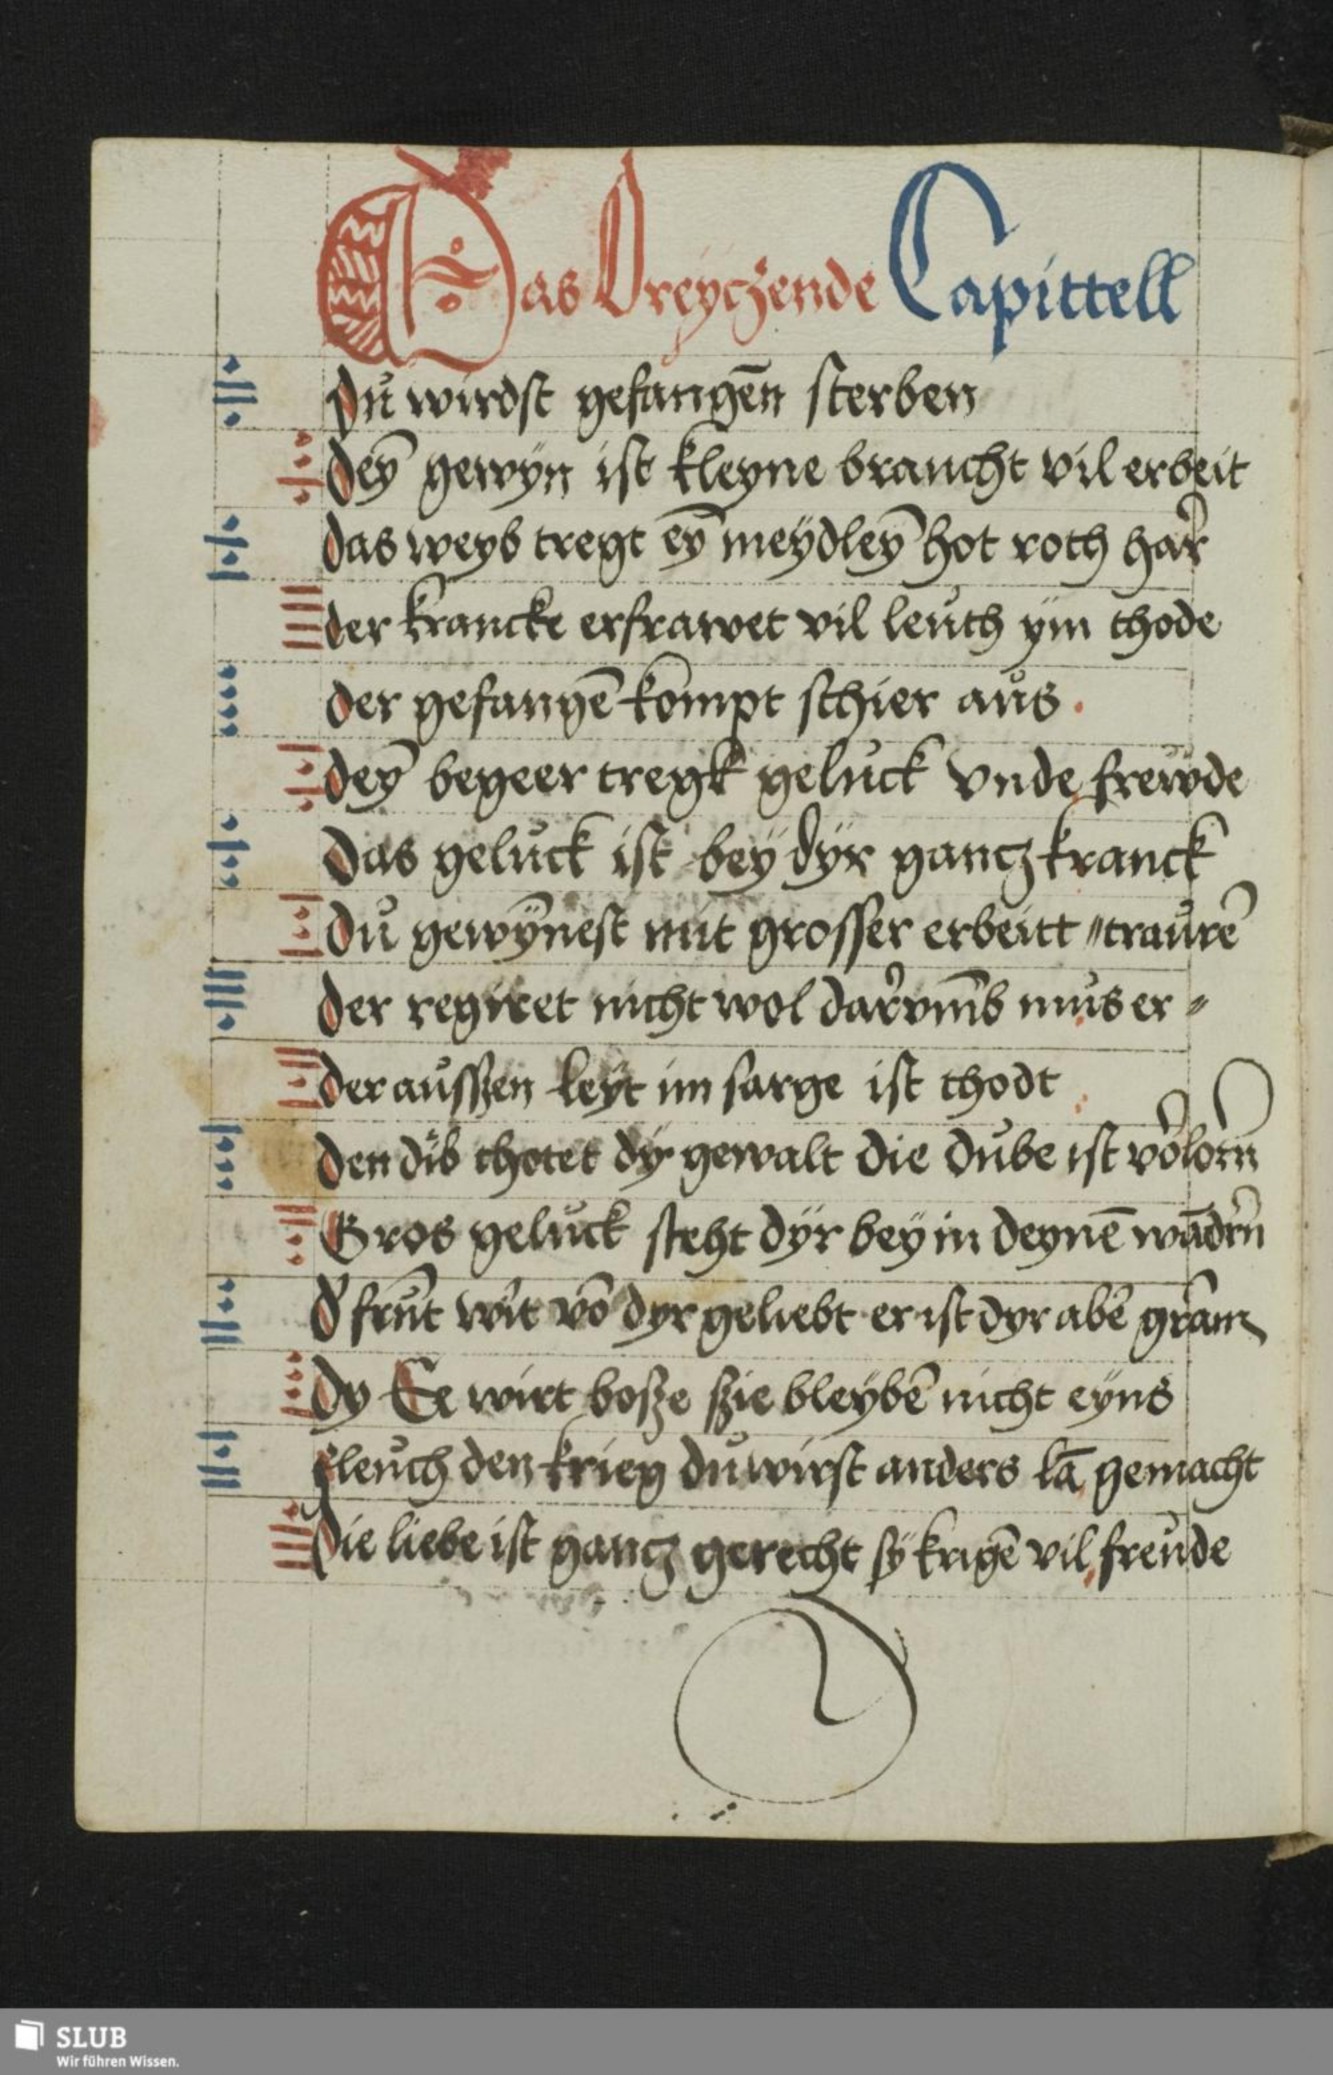 Das Dreyczende Capittell
Du wirdst gefangēn sterben
deȳ gewyn ist kleyne braucht vil erbeit
das weyb tregt eȳ meydleȳ hot roth har
der krancke erfrawet vil leuth ym thode
der gefangē kompt schier aus.
deȳ begeer tregk geluck vnde frewde
Das geluck ist bey dyr gancz kranck
Du gewȳnest mit grosser erbeitt traurē
der regiret nicht wol darvm̄b mus er
der aussen leyt im sarge ist thodt
den dib thotet dy gewalt die dube ist v̓lorn
Gros geluck steht dyr bey in deynē wādrn̄
d̓ frūt wirt vō dyr geliebt er ist dyr aber gram
dy Ee wirt bosze szie bleybē nicht eyns
fleuch den krieg du wirst anders lā gemacht
Die liebe ist gancz gerecht sy krigē vil freude
SLUB
Wir führen Wissen.